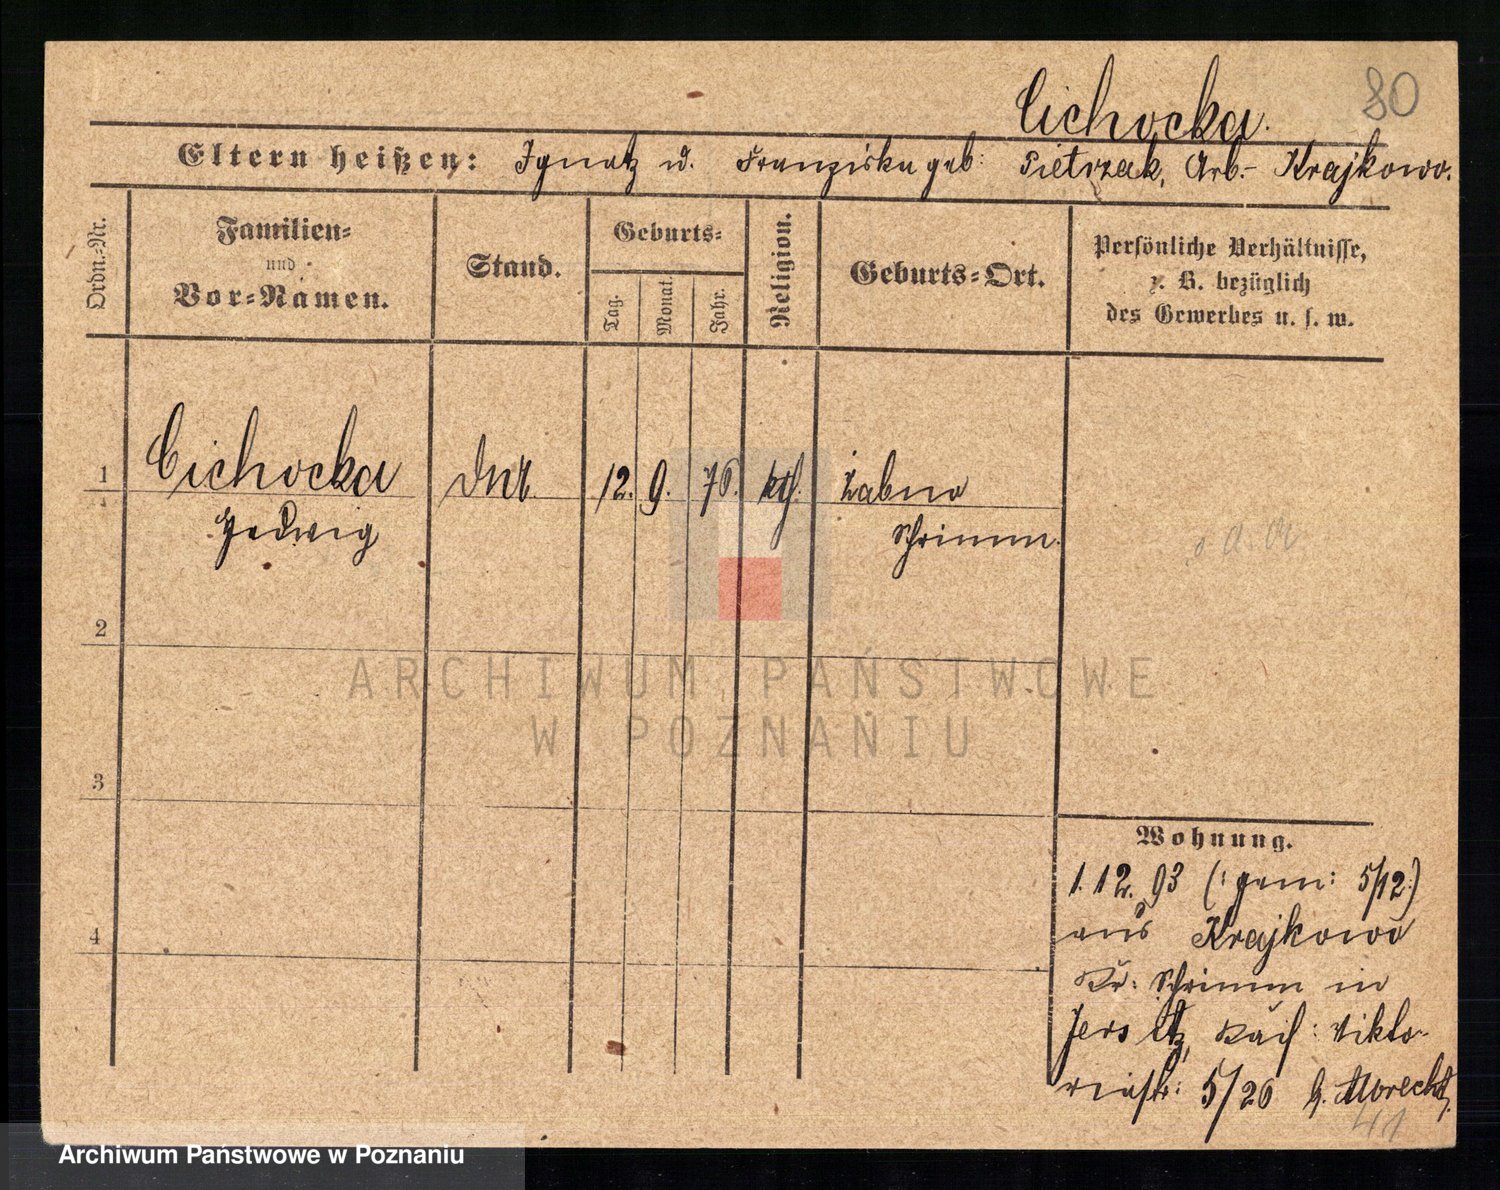 Cichocka.
80
Eltern heißen: Ignatz u. Franziska geb: Pietrzak, Arb.- Krajkowo.
Ordn.-Nr.
Familien-
und
Vor-Namen.
Stand.
Geburts-
Tag.
Monat.
Jahr.
Religion.
Geburts-Ort.
Persönliche Verhältnisse,
z. B. bezüglich
des Gewerbes u. s. w.
1 Cichocka 12. 9. 76. kth. Zabno
Hedwig Schrimm.
2
3
4
Wohnung.
1.12.93 (: gem: 5/12:)
aus Krajkowo
Kr: Schrimm in
Jersitz, Kais: Vikto-
riastr: 5/26 b. Albrecht.
41
ARCHIWUM PAŃSTWOWE
W POZNANIU
Archiwum Państwowe w Poznaniu